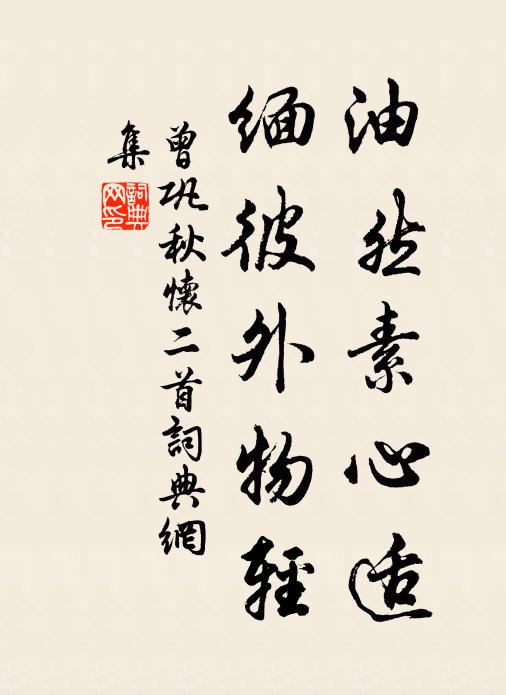 油然素心适
缅彼外物輕
曾巩秋懷二首詞典網
集
詞典
网印